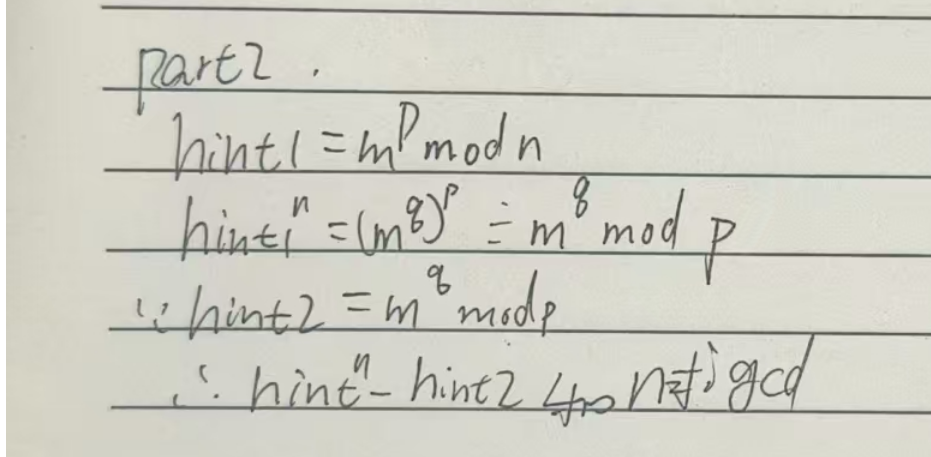 part2.
hint1 = m^p mod n
hint1^n = (m^q)^p ≡ m^q mod p
∵ hint2 = m^q mod p
∴ hint^n - hint2 和 n求gcd